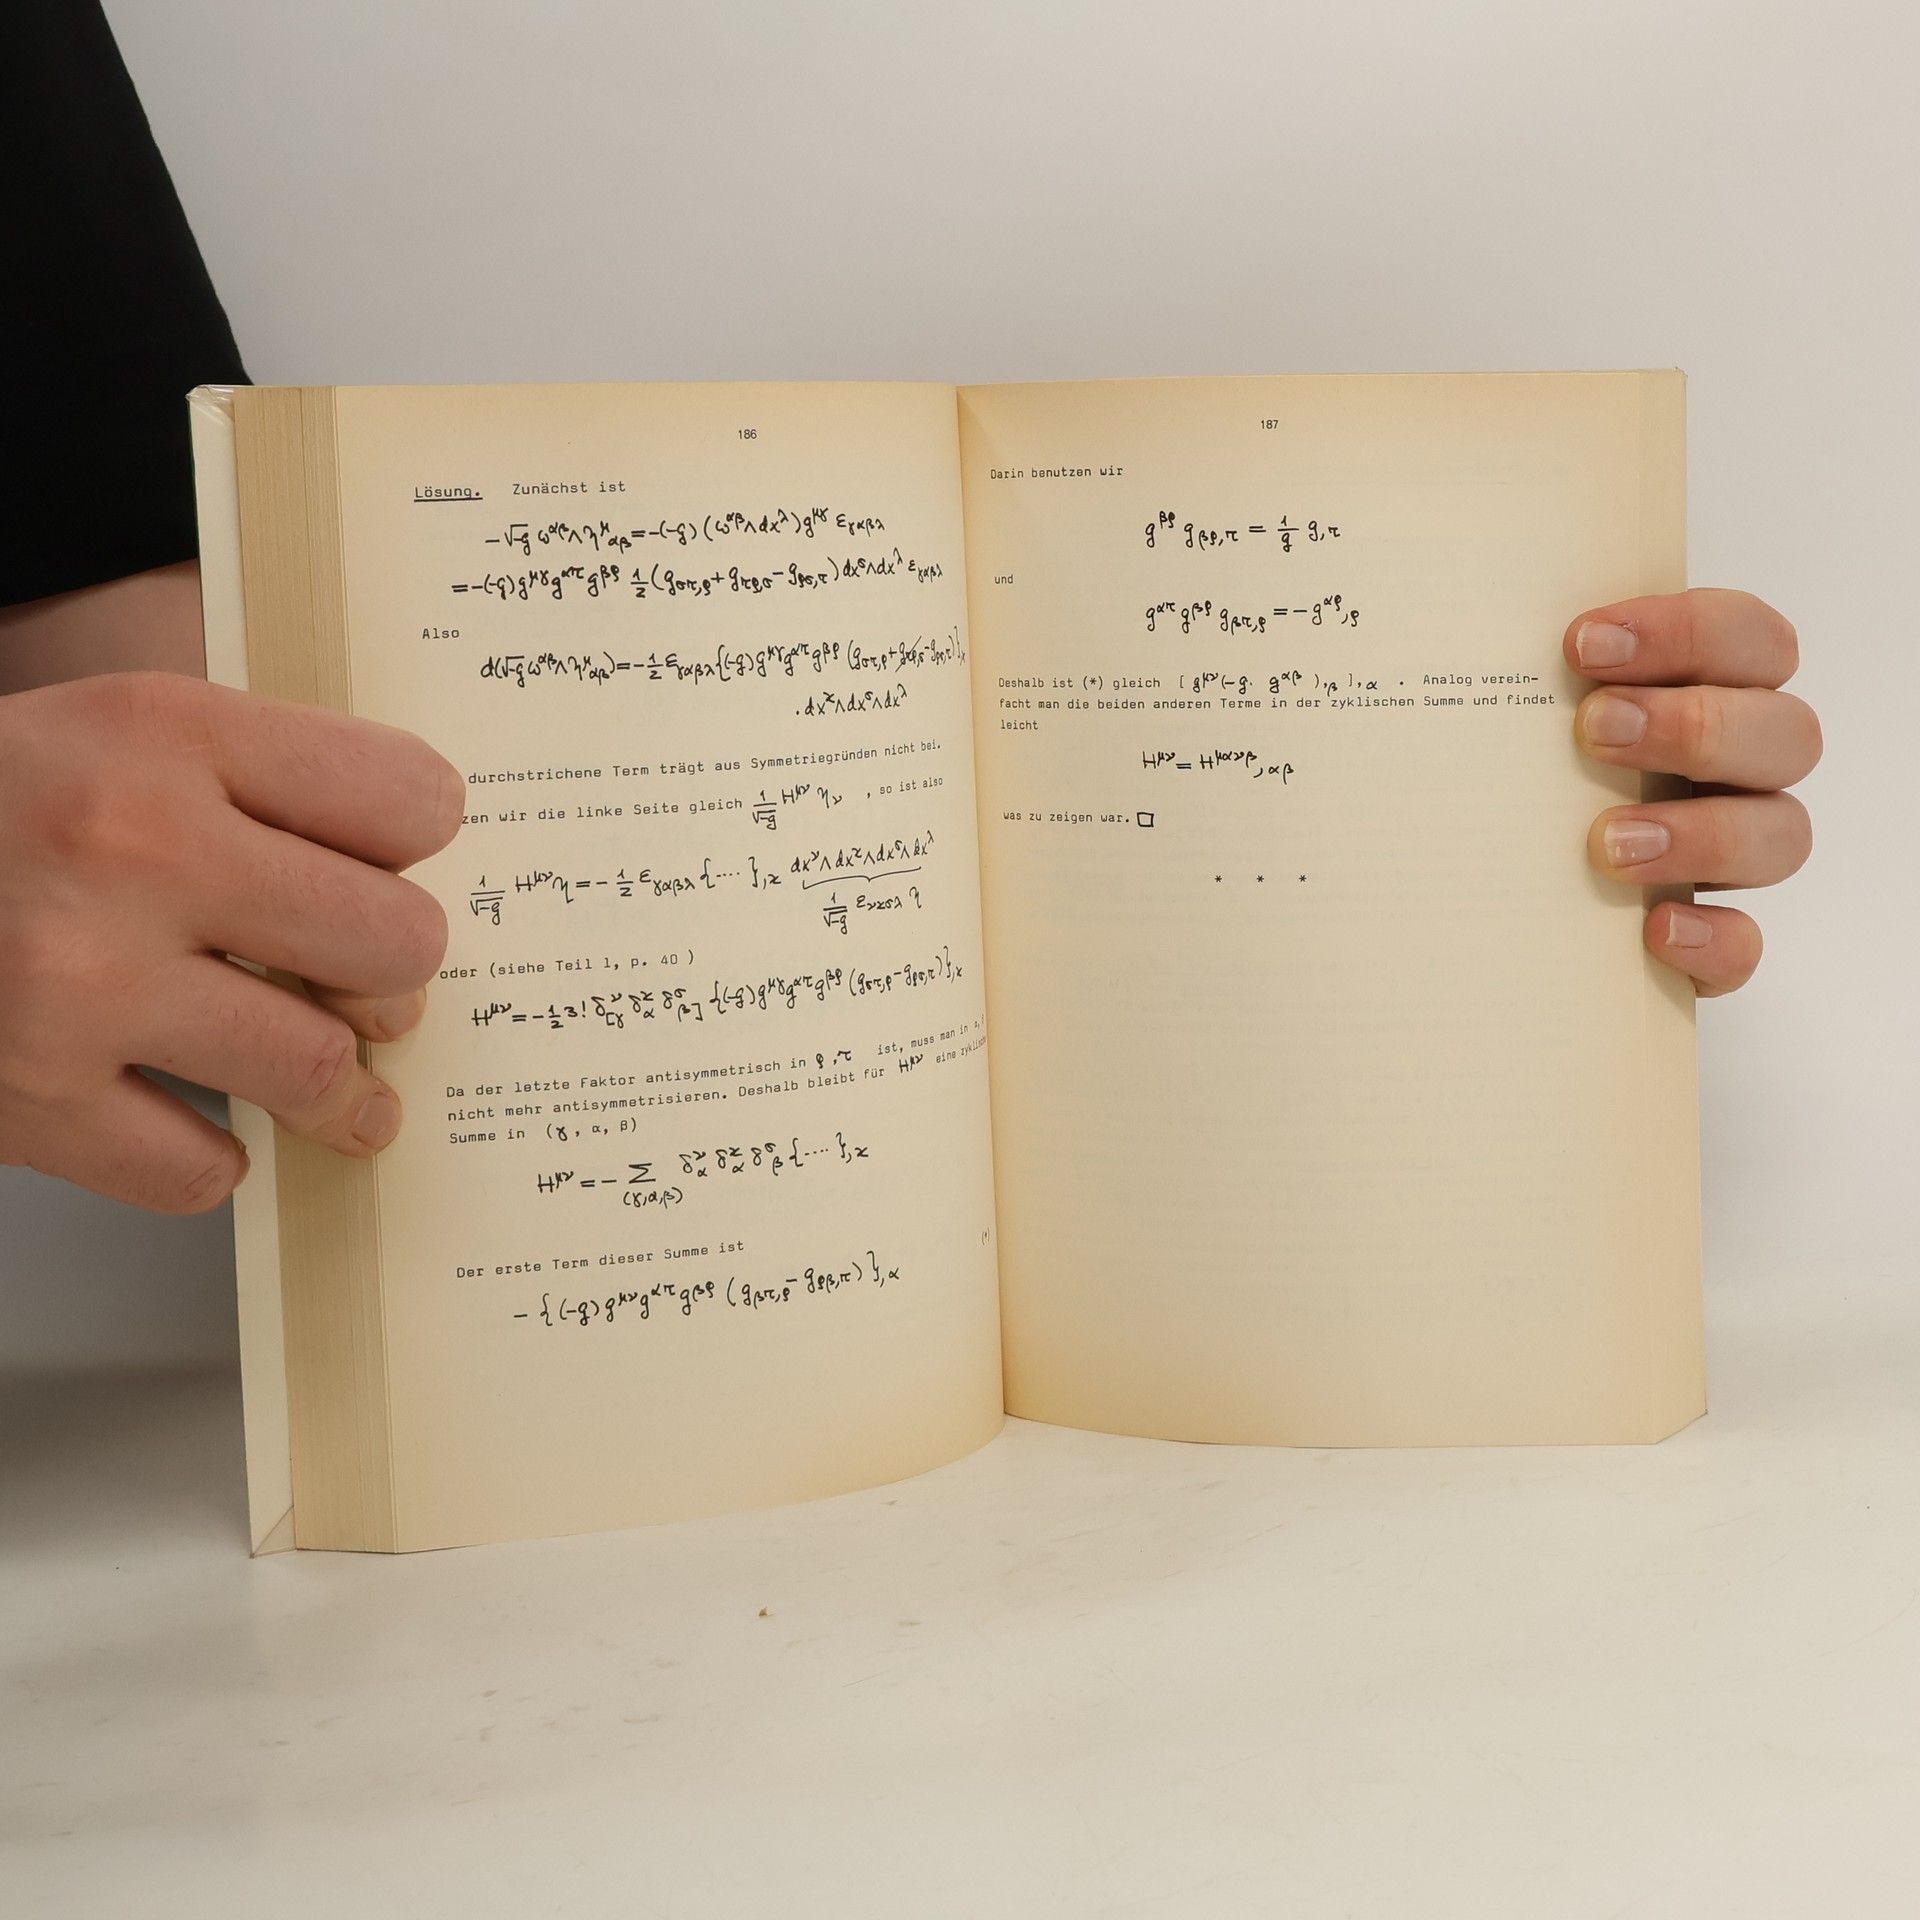 186
Lösung. Zunächst ist
−√-g ω^{αβ}∧η^μ_{αβ}=−(−g)(ω^{αβ}∧dx^λ)g^{μγ} ε_{γαβλ}
=−(−g)g^{μγ}g^{απ}g^{βρ} 1/2(g_{σπ,ρ}+g_{πρ,σ}−g_{ρσ,π})dx^σ∧dx^λ ε_{γαβλ}
Also
d(√-g ω^{αβ}∧η^μ_{αβ})=−1/2 ε_{γαβλ}{(−g)g^{μγ}g^{απ}g^{βρ}(g_{σπ,ρ}+g_{πρ,σ}−g_{ρσ,π})},ϰ
·dx^ϰ∧dx^σ∧dx^λ
durchstrichene Term trägt aus Symmetriegründen nicht bei.
zen wir die linke Seite gleich 1/√-g H^{μν} η_ν , so ist also
1/√-g H^{μν}η=−1/2 ε_{γαβλ}{····},ϰ dx^ν∧dx^ϰ∧dx^σ∧dx^λ
1/√-g ε_{νϰσλ} η
oder (siehe Teil 1, p. 40 )
H^{μν}=−1/2 3! δ^ν_{[γ} δ^ϰ_α δ^σ_{β]} {(−g)g^{μγ}g^{απ}g^{βρ}(g_{σπ,ρ}−g_{ρσ,π})},ϰ
Da der letzte Faktor antisymmetrisch in ρ,π ist, muss man in
nicht mehr antisymmetrisieren. Deshalb bleibt für H^{μν} eine
Summe in (γ, α, β)
H^{μν}=−∑_{(γ,α,β)} δ^ν_α δ^ϰ_α δ^σ_β {····},ϰ
Der erste Term dieser Summe ist
(*)
−{(−g)g^{μν}g^{απ}g^{βρ}(g_{βπ,ρ}−g_{ρβ,π})},α
187
Darin benutzen wir
g^{βρ} g_{βρ,π} = 1/g g,π
und
g^{απ}g^{βρ}g_{βπ,ρ}=−g^{αρ},ρ
Deshalb ist (*) gleich [ g^{μν}(−g· g^{αβ} ),β ],α . Analog verein-
facht man die beiden anderen Terme in der zyklischen Summe und findet
leicht
H^{μν}=H^{μανβ},αβ
was zu zeigen war. □
* * *